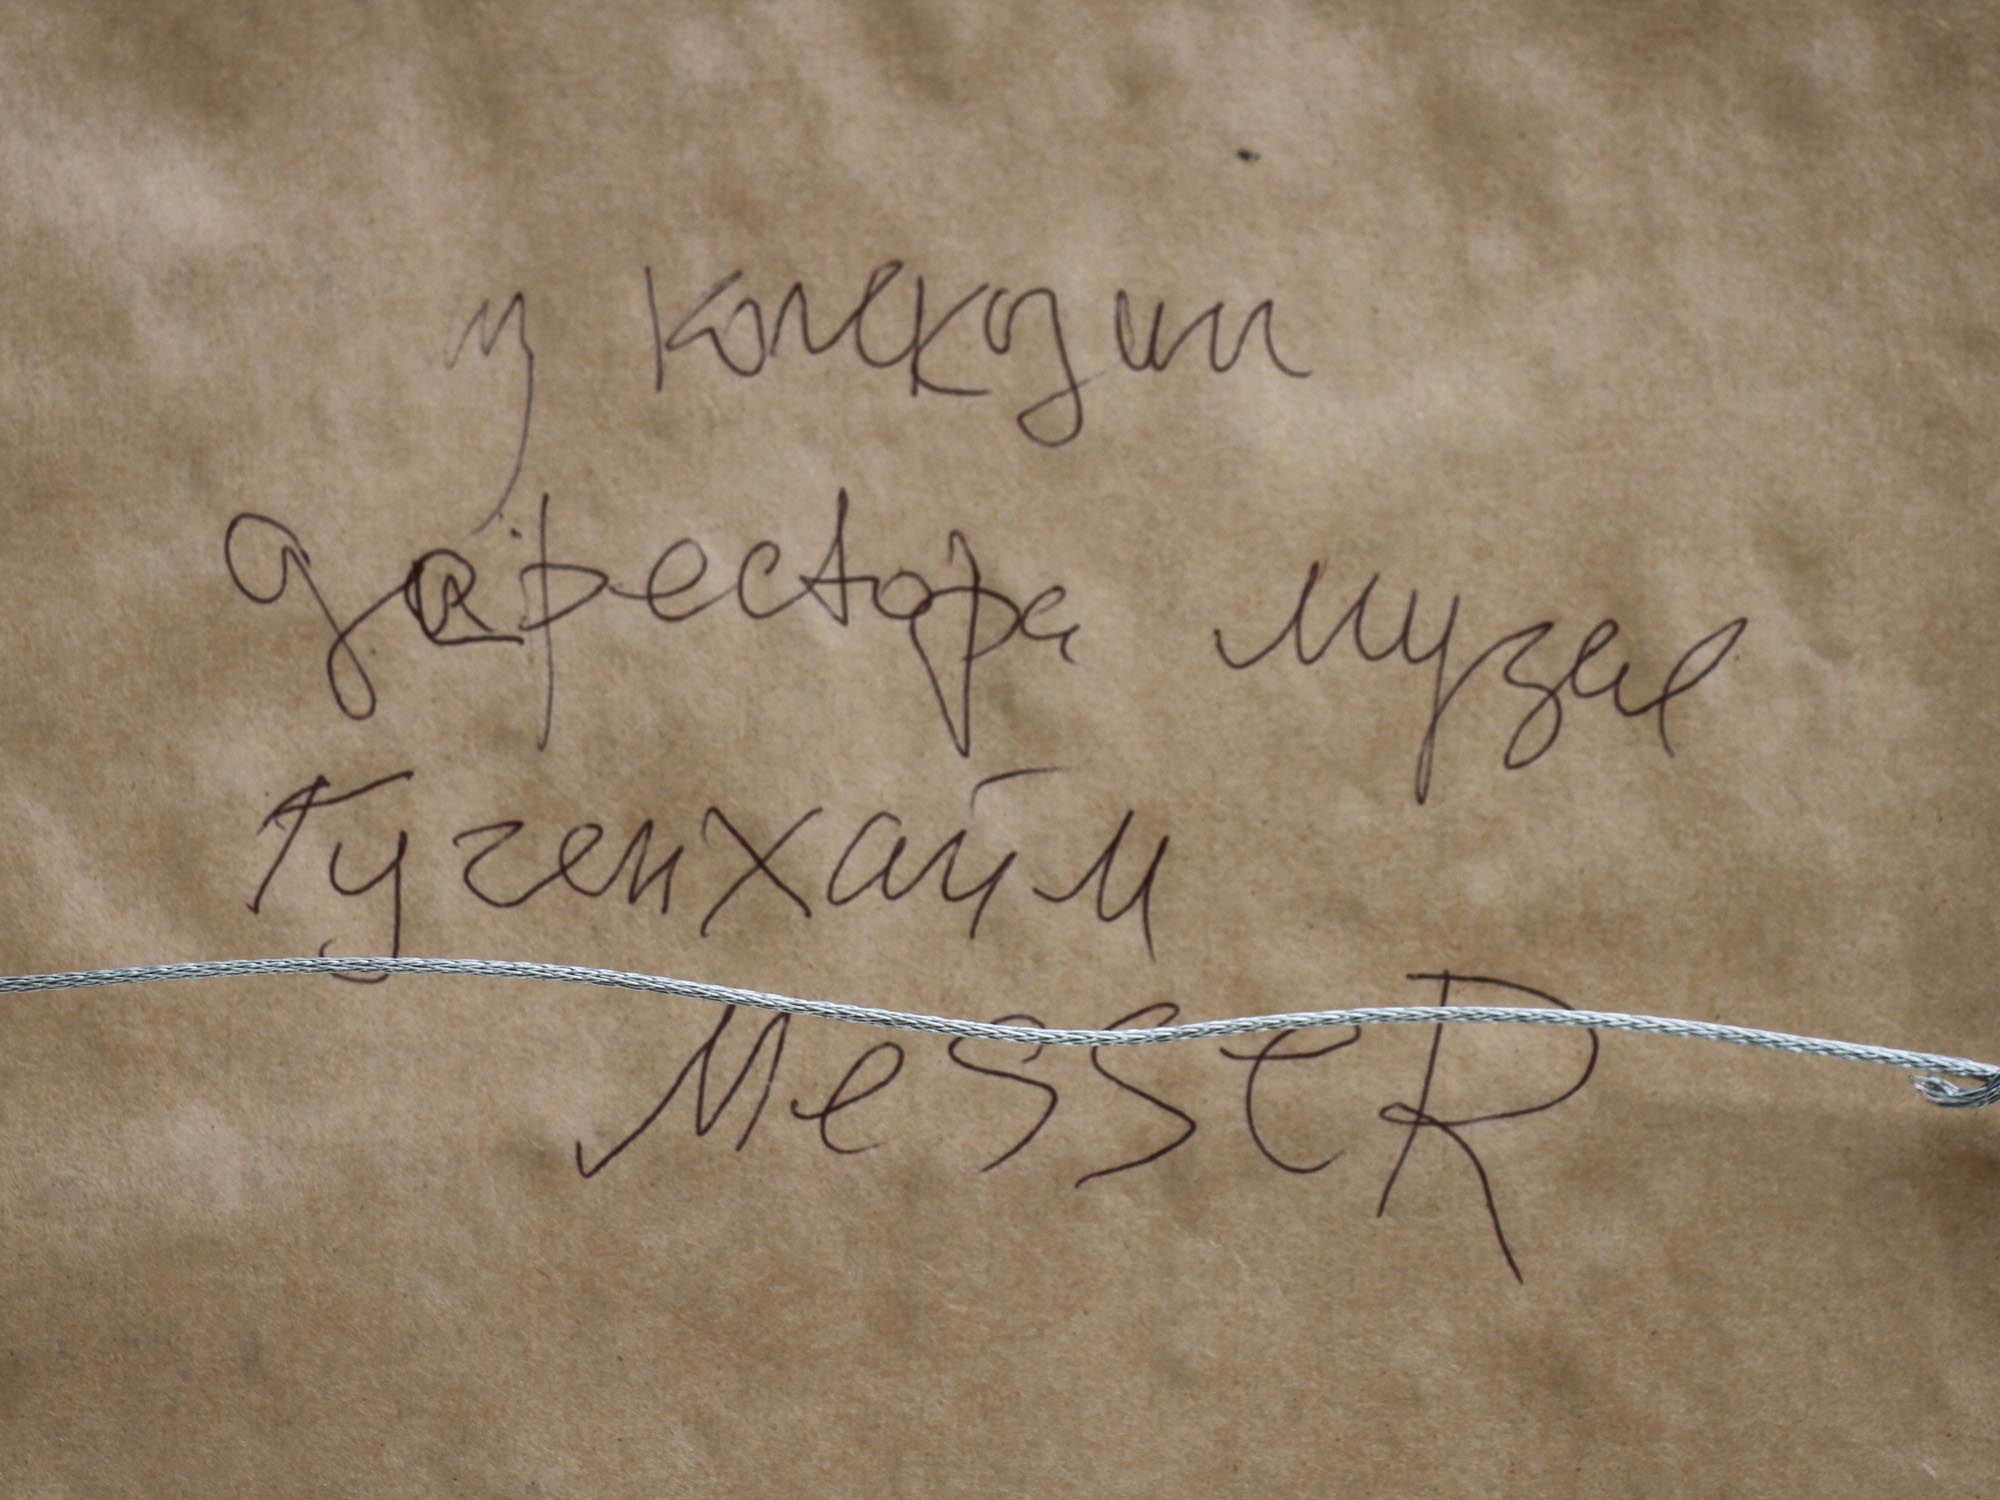 из колекции
директора музея
Гугенхайм
MesseR